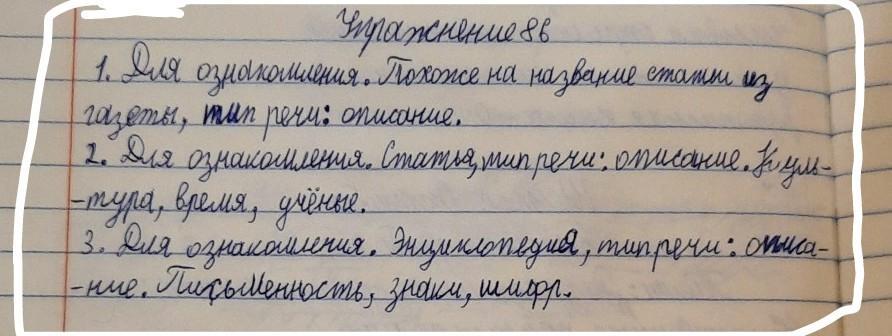 Упражнение 86
1. Для ознакомления. Похоже на название статьи из
газеты, тип речи: описание.
2. Для ознакомления. Статья, тип речи: описание. Куль-
-тура, время, учёные.
3. Для ознакомления. Энциклопедия, тип речи: описа-
-ние. Письменность, знаки, шифр.